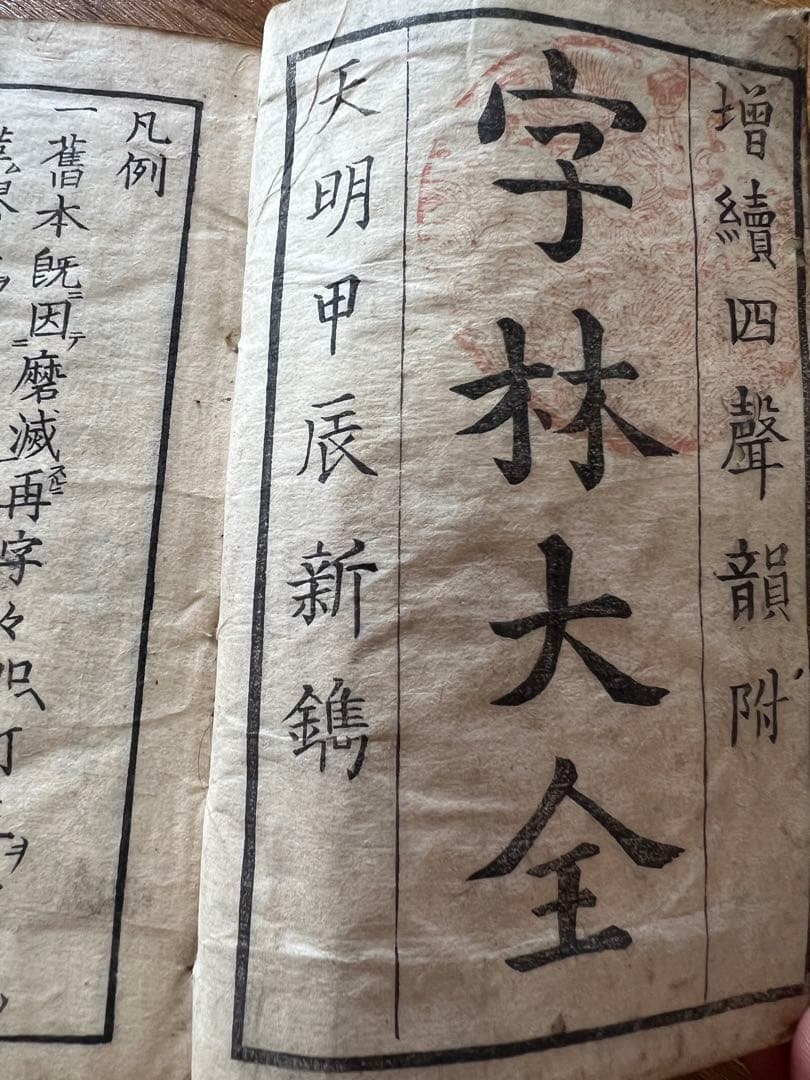 增續四聲韻附
字林大全
天明甲辰新鐫
凡例
一舊本既ニ因テ磨滅スルニ再字々